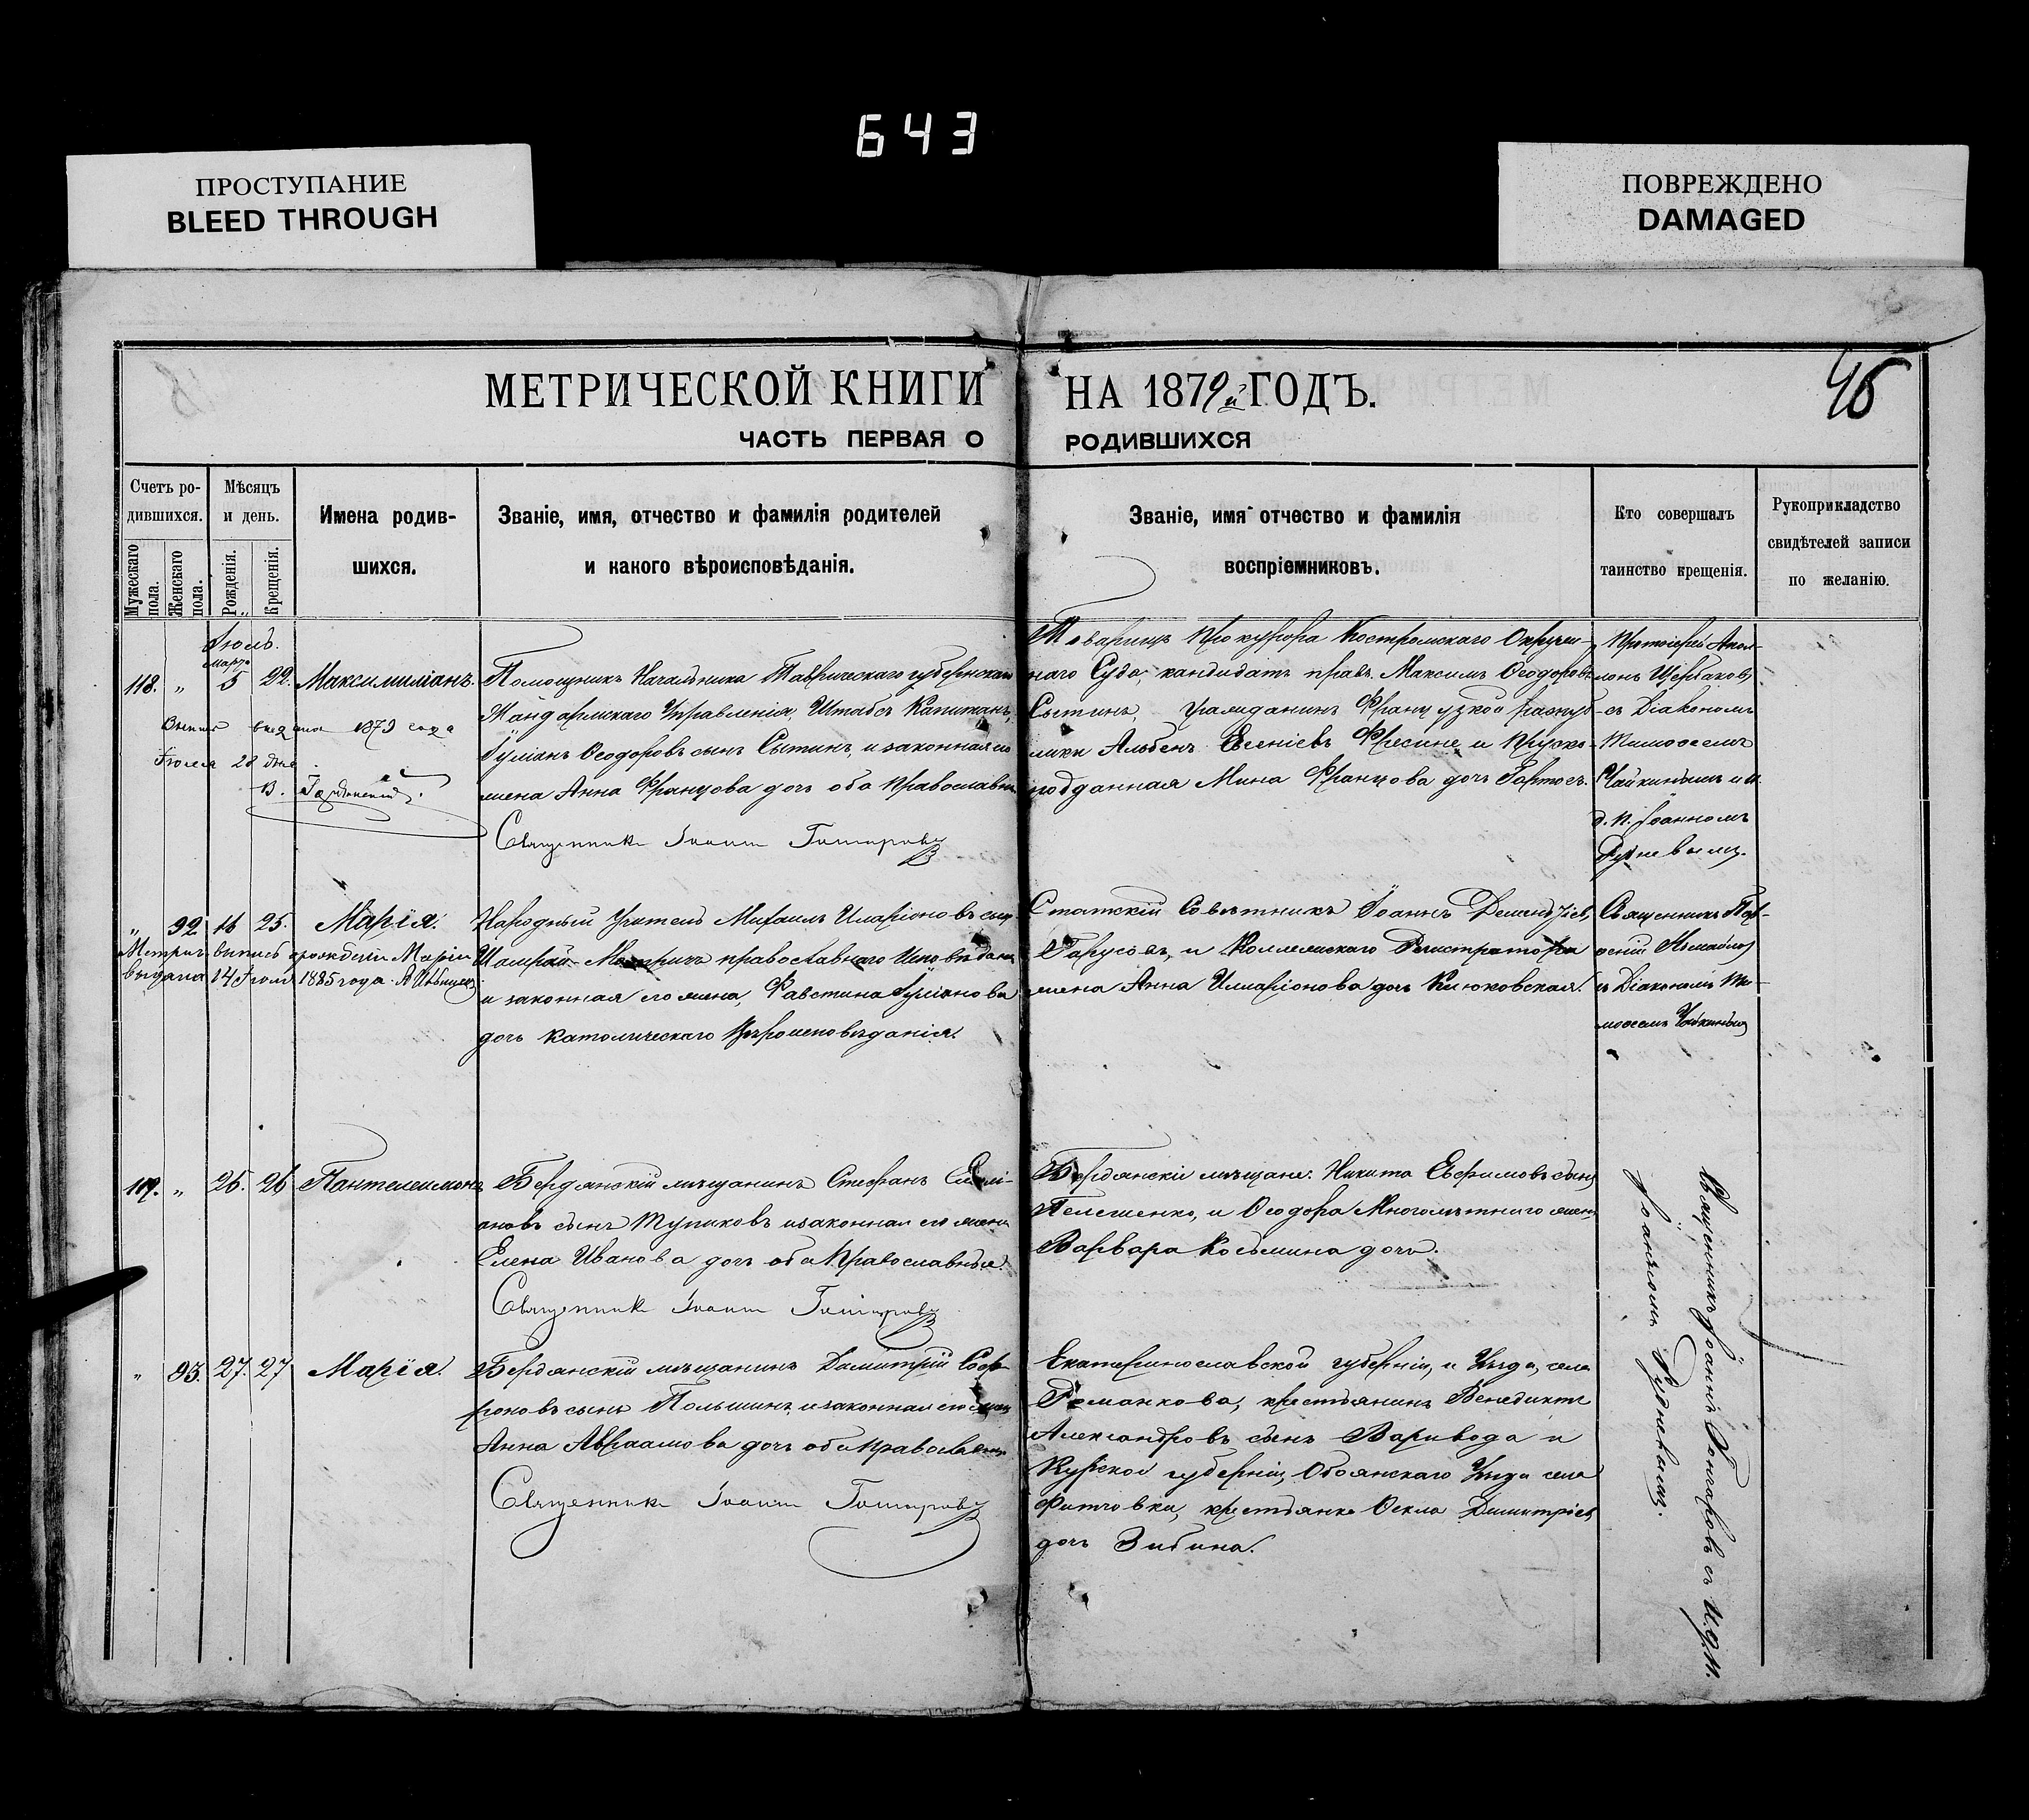 643
ПРОСТУПАНИЕ
BLEED THROUGH
ПОВРЕЖДЕНО
DAMAGED
МЕТРИЧЕСКОЙ КНИГИ НА 1879й ГОДЪ.
ЧАСТЬ ПЕРВАЯ О РОДИВШИХСЯ
Счетъ ро-
дившихся.
Мужескаго пола.
Женскаго пола.
Мѣсяцъ
и день.
Рожденія.
Крещенія.
Имена родив-
шихся.
Званіе, имя, отчество и фамилія родителей
и какого вѣроисповѣданія.
Званіе, имя отчество и фамилія
воспріемниковъ.
Кто совершалъ
таинство крещенія.
Рукоприкладство
свидѣтелей записи
по желанію.
Іюль.
Марта
118. „ 5 22. Максимиліанъ.
выдана 1879 года
Іюля 28 дня
Помощникъ Начальника Таврическаго губернскаго
Жандармскаго Управленія, Штабсъ Капитанъ,
Іуліанъ Ѳеодоровъ сынъ Сытинъ, и законная его
жена Анна Францова дочь оба православные
Священникъ Іоаннъ Гончаровъ
Товарищъ Прокурора Костромскаго Окруж-
наго Суда, кандидатъ правъ Максимъ Ѳеодоровъ
Сытинъ, гражданинъ Французкой респуб-
лики Альбенъ и Прусско-
подданная Мина Францова дочь
Протоіерей
Щербаковъ
съ Діакономъ
Тимоѳеемъ
Чайкинымъ и и.
д. п. Іоанномъ
Рудневымъ.
„ 92 16 25. Марія.
Метрич. выпись о рожденіи Маріи
выдана 14 Іюля 1885 года.
Народный Учитель Михаилъ Иларіоновъ сынъ
православнаго исповѣданія
и законная его жена, Фавстина Іуліанова
дочь католическаго вѣроисповѣданія.
Статскій Совѣтникъ Іоаннъ Дементіевъ
Гарусовъ, и Коллежскаго Регистратора
жена Анна Иларіонова дочь Клюковская.
Священникъ
съ Діакономъ Ти-
моѳеемъ Чайкинымъ
119. „ 25. 26 Пантелеимонъ
Бердянскій мѣщанинъ Стефанъ
ановъ сынъ Тупиковъ и законная его жена
Елена Иванова дочь оба православные.
Священникъ Іоаннъ Гончаровъ
Бердянскіе мѣщане: Никита Евфимовъ сынъ
Пелешенко, и Ѳеодора Многолѣтняго жена
Варвара Косьмина дочь.
Священникъ Іоаннъ Гончаровъ съ И.Д.П.
Іоанномъ Рудневымъ.
„ 93. 27. 27 Марія.
Бердянскій мѣщанинъ Димитрій Соф-
роновъ сынъ Польшинъ, и законная его жена
Анна Авраамова дочь оба православные
Священникъ Іоаннъ Гончаровъ
Екатеринославской губерніи, и Уѣзда, села
Романкова, крестьянинъ Венедиктъ
Александровъ сынъ Варивода и
Курской губерніи, Обоянскаго Уѣзда села
крестьянка Ѳекла Димитріева
дочь Зибина.